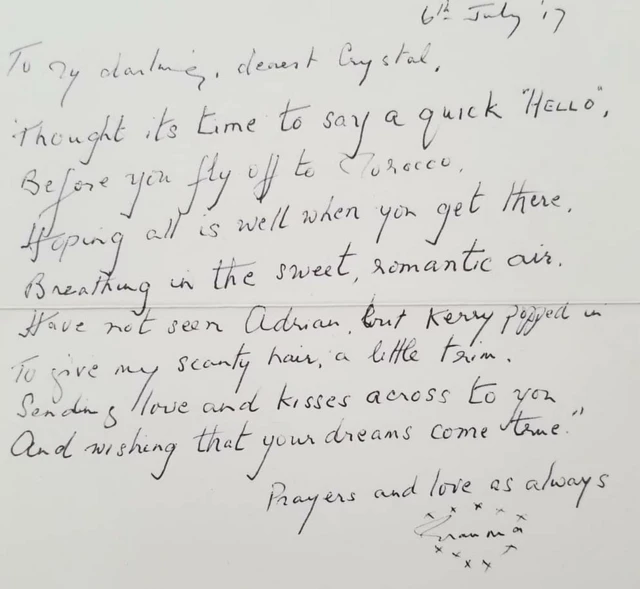 6th July '17
To my darling, dearest Crystal,
Thought its time to say a quick "HELLO",
Before you fly off to Morocco,
Hoping all is well when you get there,
Breathing in the sweet, romantic air.
Have not seen Adrian, but Kerry popped in
To give my scanty hair, a little trim.
Sending love and kisses across to you
And wishing that your dreams come true."
Prayers and love as always
x x x x x
Gramma
x x x x x x